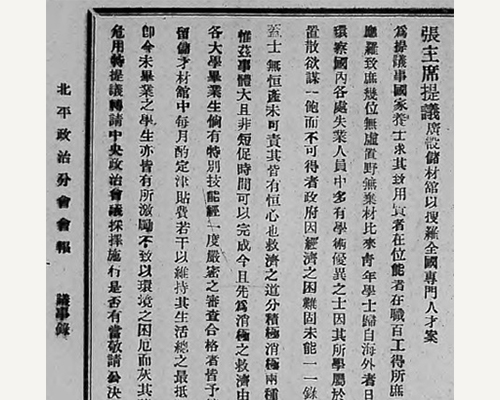 張主席提議廣設儲材館以搜羅全國專門人才案
為提議事國家養士求其致用賢者在位能者在職百工得所庶
應羅致庶幾位無虛置野無棄材比來青年學士歸自海外者日
環察國內各處失業人員中多有學術優異之士因其所學屬於
置散欲謀一飽而不可得者政府因經濟之困難固未能一一錄
士無恒產未可責其皆有恒心也救濟之道分積極消極兩種
惟茲事體大且非短促時間可以完成今且先為消極之救濟由
各大學畢業生倘有特別技能經一度嚴密之審查合格者皆予
留儲才材館中每月酌定津貼費若干以維持其生活總之最抵
即令未畢業之學生亦皆有所激勵不致以環境之困厄而灰其
危用特提議轉請中央政治會議採擇施行是否有當敬請公決
北平政治分會會報 議事錄